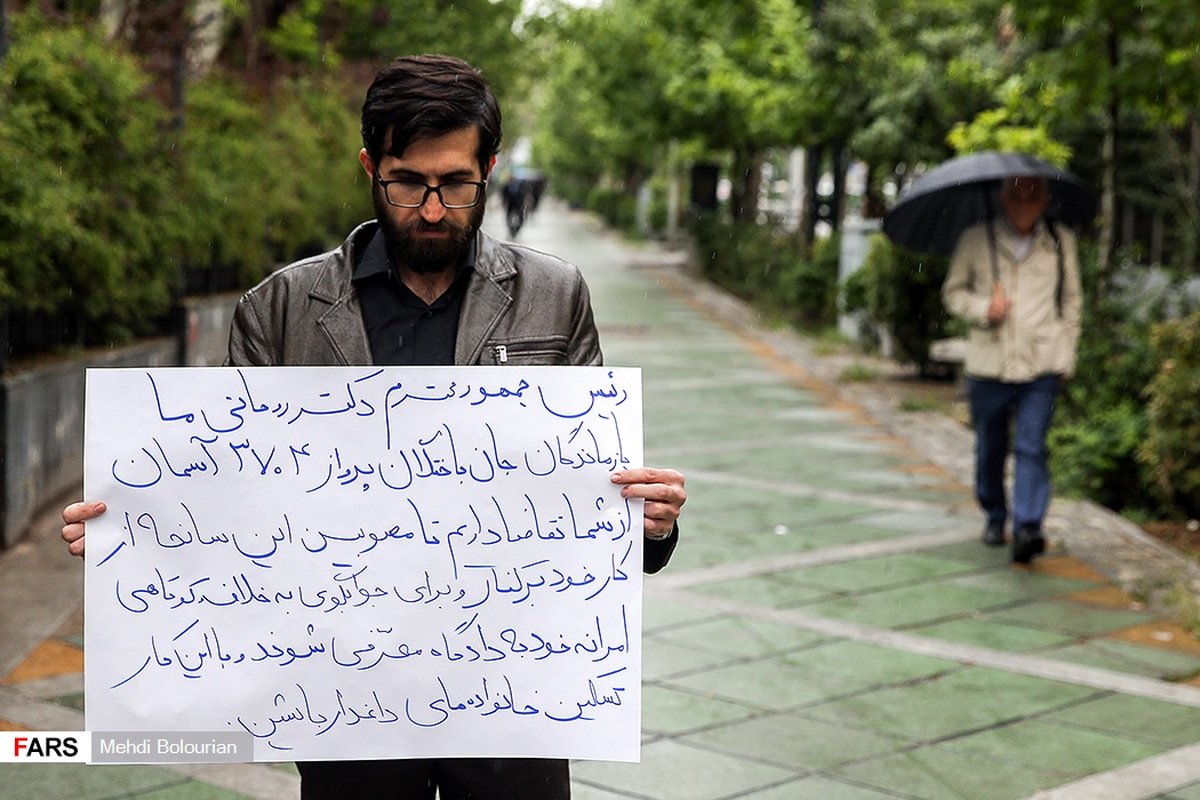 رئیس جمهور محترم دکتر روحانی ما
بازماندگان جان باختگان پرواز ۳۷۰۴ آسمان
از شما تقاضا داریم تا مصوبین این سانحه از
کار خود برکنار و برای جوابگوی به خلاف و کوتاهی
امرانه خود به دادگاه معرفی شوند و با این کار
تسکین خانواده های داغدار باشین.
FARS Mehdi Bolourian